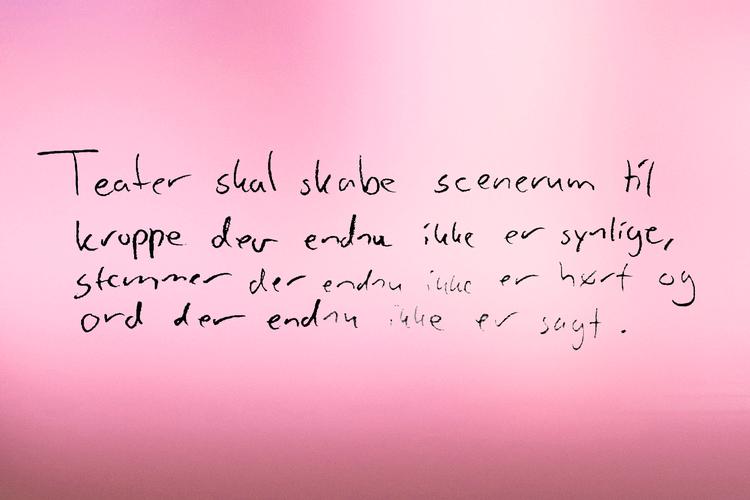 Teater skal skabe scenerum til
kroppe der endnu ikke er synlige,
stemmer der endnu ikke er hørt og
ord der endnu ikke er sagt.